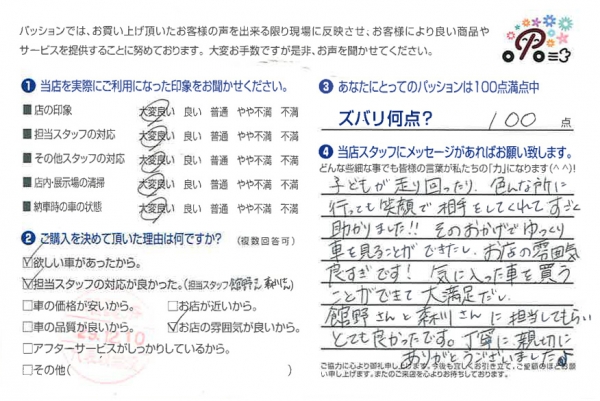 パッションでは、お買い上げ頂いたお客様の声を出来る限り現場に反映させ、お客様により良い商品や
サービスを提供することに努めております。大変お手数ですが是非、お声を聞かせてください。
❶ 当店を実際にご利用になった印象をお聞かせください。
■ 店の印象 大変良い 良い 普通 やや不満 不満
■ 担当スタッフの対応 大変良い 良い 普通 やや不満 不満
■ その他スタッフの対応 大変良い 良い 普通 やや不満 不満
■ 店内・展示場の清掃 大変良い 良い 普通 やや不満 不満
■ 納車時の車の状態 大変良い 良い 普通 やや不満 不満
❷ ご購入を決めて頂いた理由は何ですか? (複数回答可)
☑欲しい車があったから。
☑担当スタッフの対応が良かった。(担当スタッフ 館野さん 森川さん)
□車の価格が安いから。 □お店が近いから。
□車の品質が良いから。 ☑お店の雰囲気が良いから。
□アフターサービスがしっかりしているから。
□その他( )
❸ あなたにとってのパッションは100点満点中
ズバリ何点? 100 点
❹ 当店スタッフにメッセージがあればお願い致します。
どんな些細な事でも皆様の言葉が私たちの「力」になります(^ ^)!
子どもが走り回ったり、色んな所に
行っても笑顔で相手をしてくれてすごく
助かりました!! そのおかげでゆっくり
車を見ることができたし、お店の雰囲気
良すぎです! 気に入った車を買う
ことができて大満足だし、
館野さんと森川さんに担当してもらい
とても良かったです。丁寧に親切に
ありがとうございました♪
ご協力に心より御礼申し上げます。今後も宜しくお引き立て、ご愛顧のほどお願
い申し上げます。またのご来店を心よりお待ちしております。